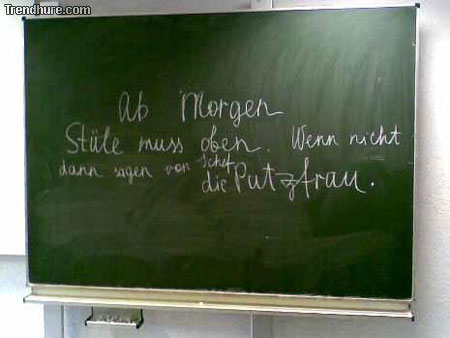 Trendhure.com
Ab Morgen
Stüle muss oben. Wenn nicht
dann sagen von Schef
die Putzfrau.